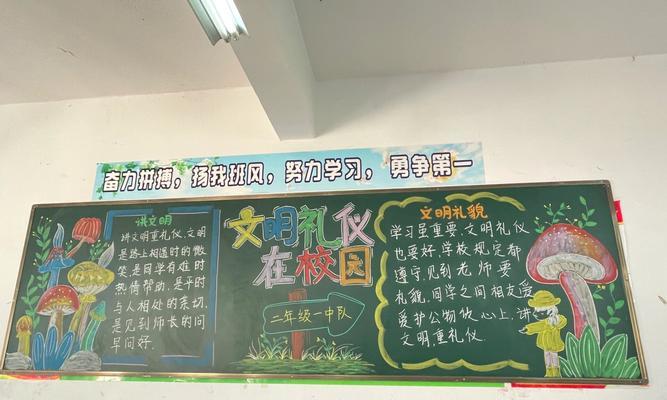 奋力拼搏，扬我班风，努力学习，勇争第一
讲文明
讲文明重礼仪，文明
是路上相遇时的微
笑，是同学有难时
热情帮助，是平时
与人相处的亲切，
是见到师长的问
早问好。
文明礼仪
在校园
二年级一中队
文明礼貌
学习虽重要，文明礼仪
也要好，学校规定都
遵守，见到老师要
礼貌，同学之间相友爱
爱护公物放心上，讲
文明重礼仪。